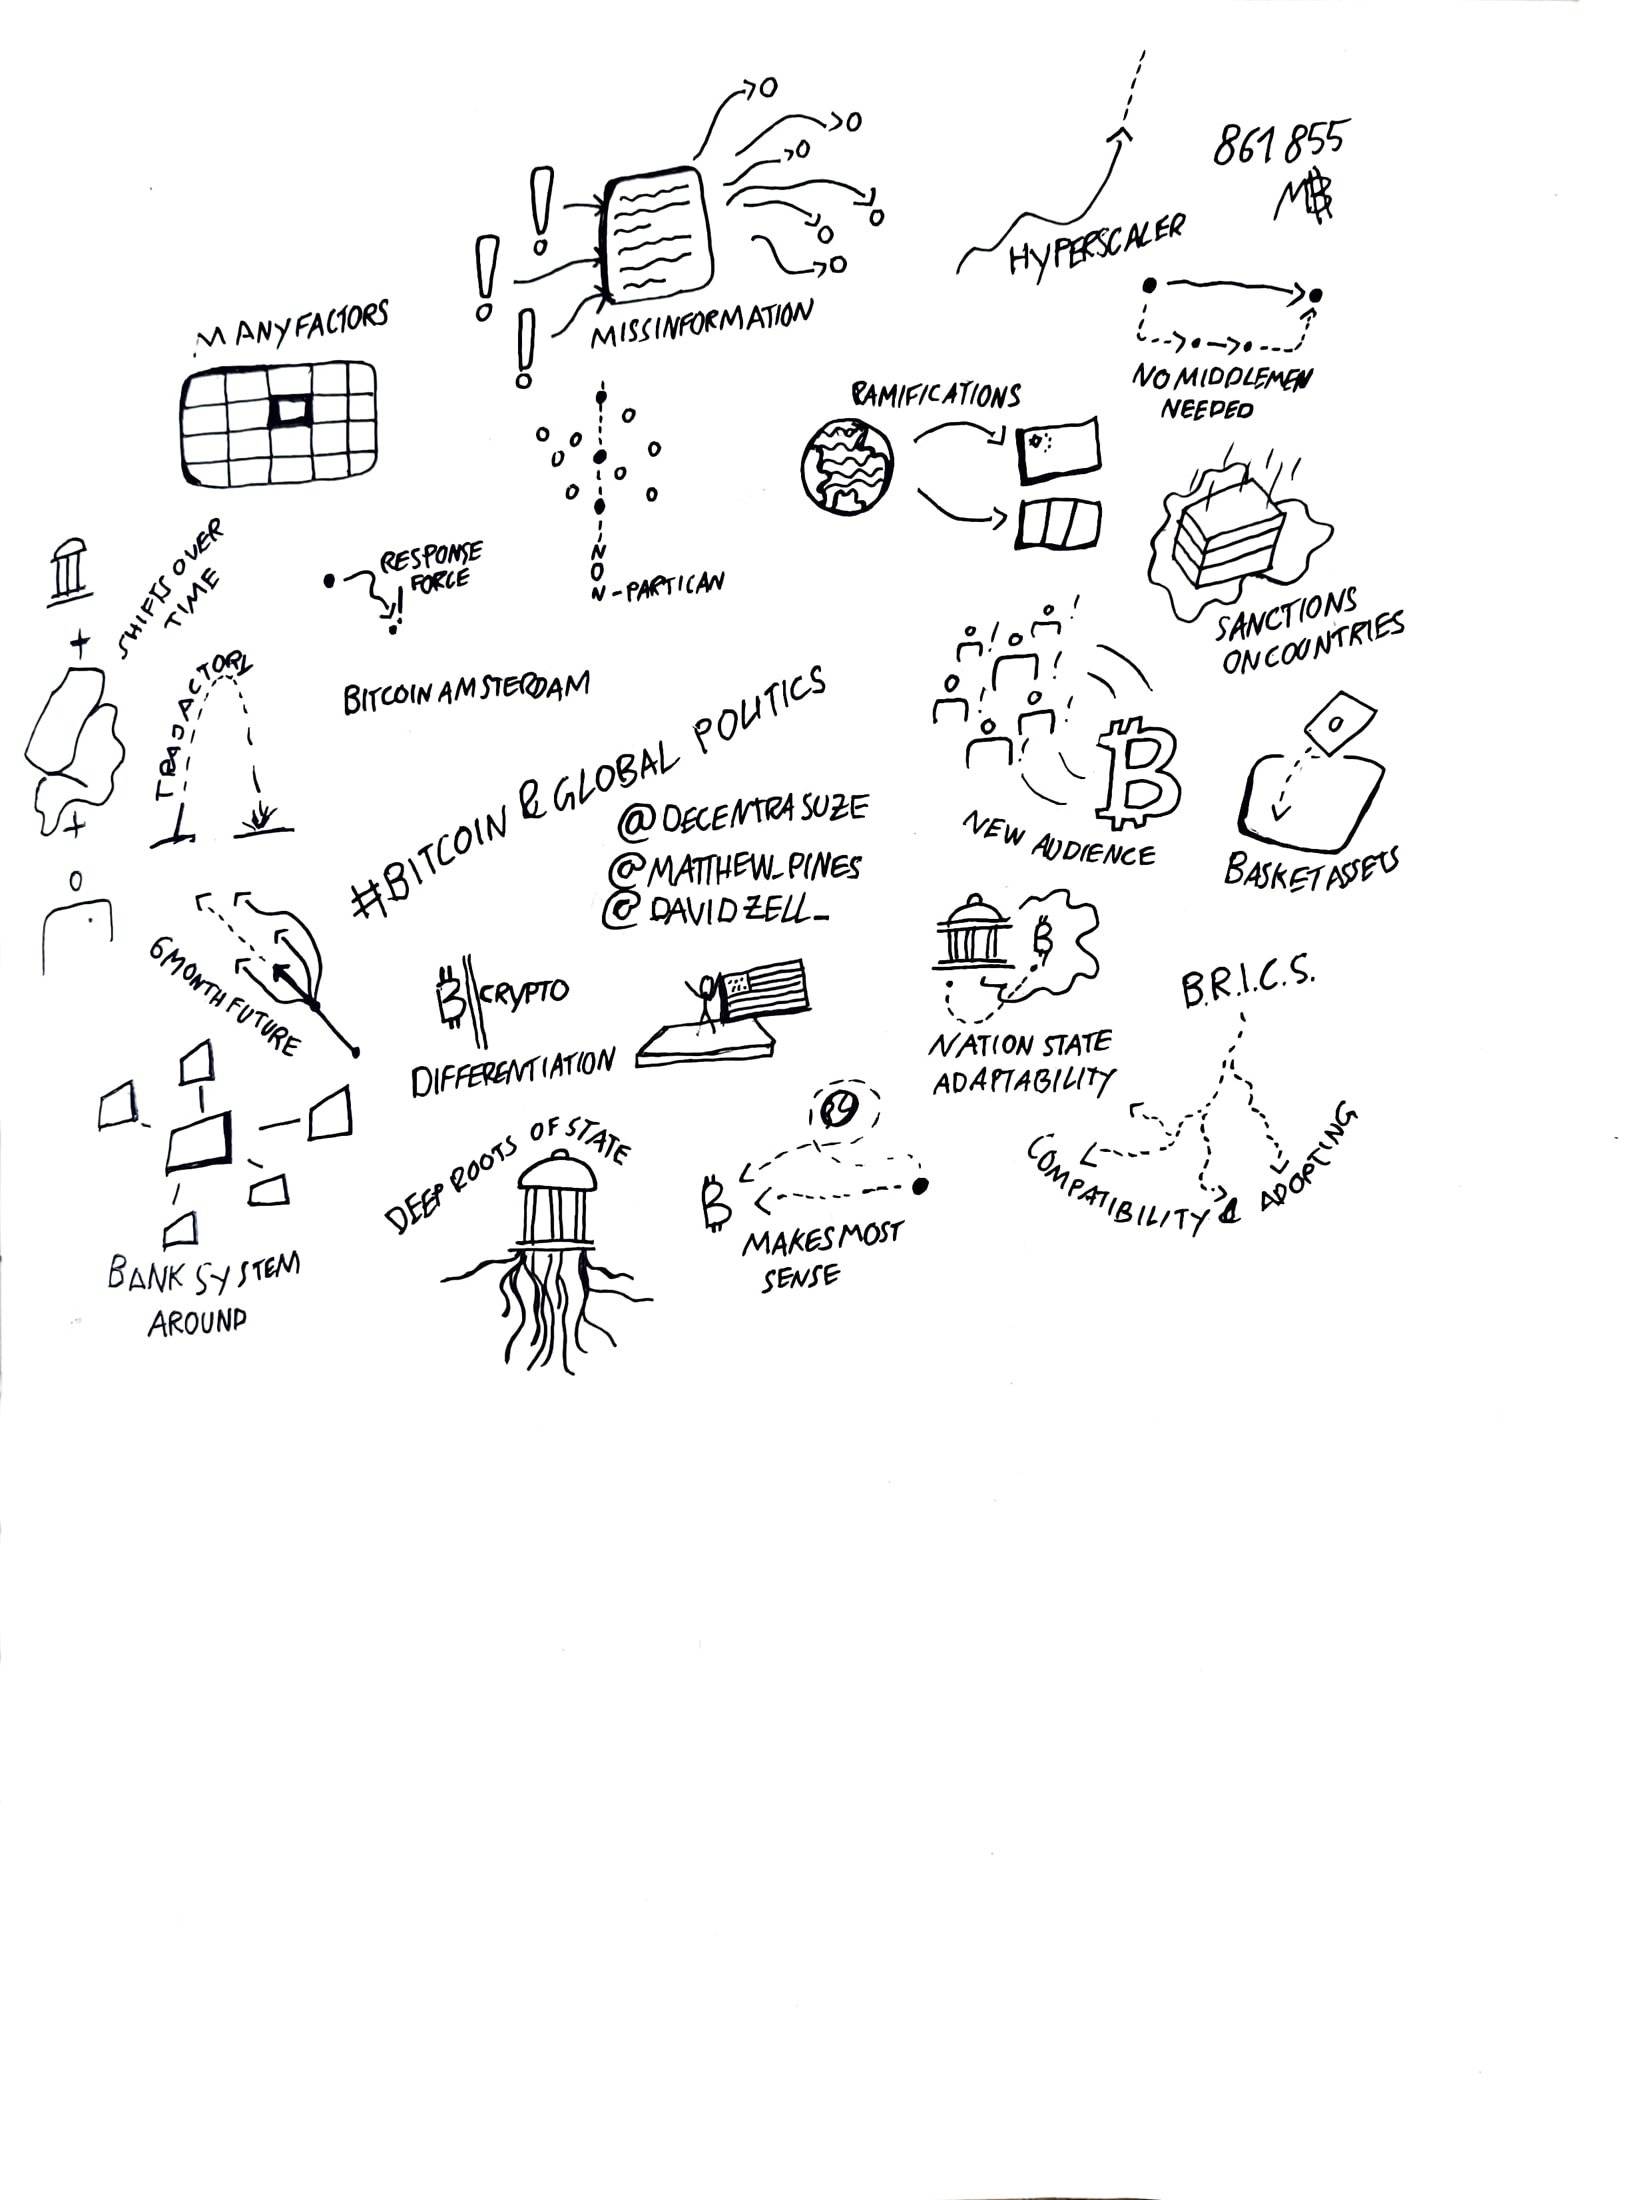 861 855
HYPERSCALER
MISSINFORMATION
MANY FACTORS
NO MIDDLEMEN
NEEDED
RAMIFICATIONS
SHIFTS OVER
TIME
RESPONSE
FORCE
NON-PARTICAN
SANCTIONS
ON COUNTRIES
TRAJACTORY
BITCOIN AMSTERDAM
#BITCOIN & GLOBAL POLITICS
@DECENTRASUZE
@MATTHEW_PINES
@DAVIDZELL_
NEW AUDIENCE
BASKET ASSETS
6 MONTH FUTURE
₿ CRYPTO
DIFFERENTIATION
NATION STATE
ADAPTABILITY
B.R.I.C.S.
COMPATIBILITY & ADOPTING
DEEP ROOTS OF STATE
MAKES MOST
SENSE
BANK SYSTEM
AROUND